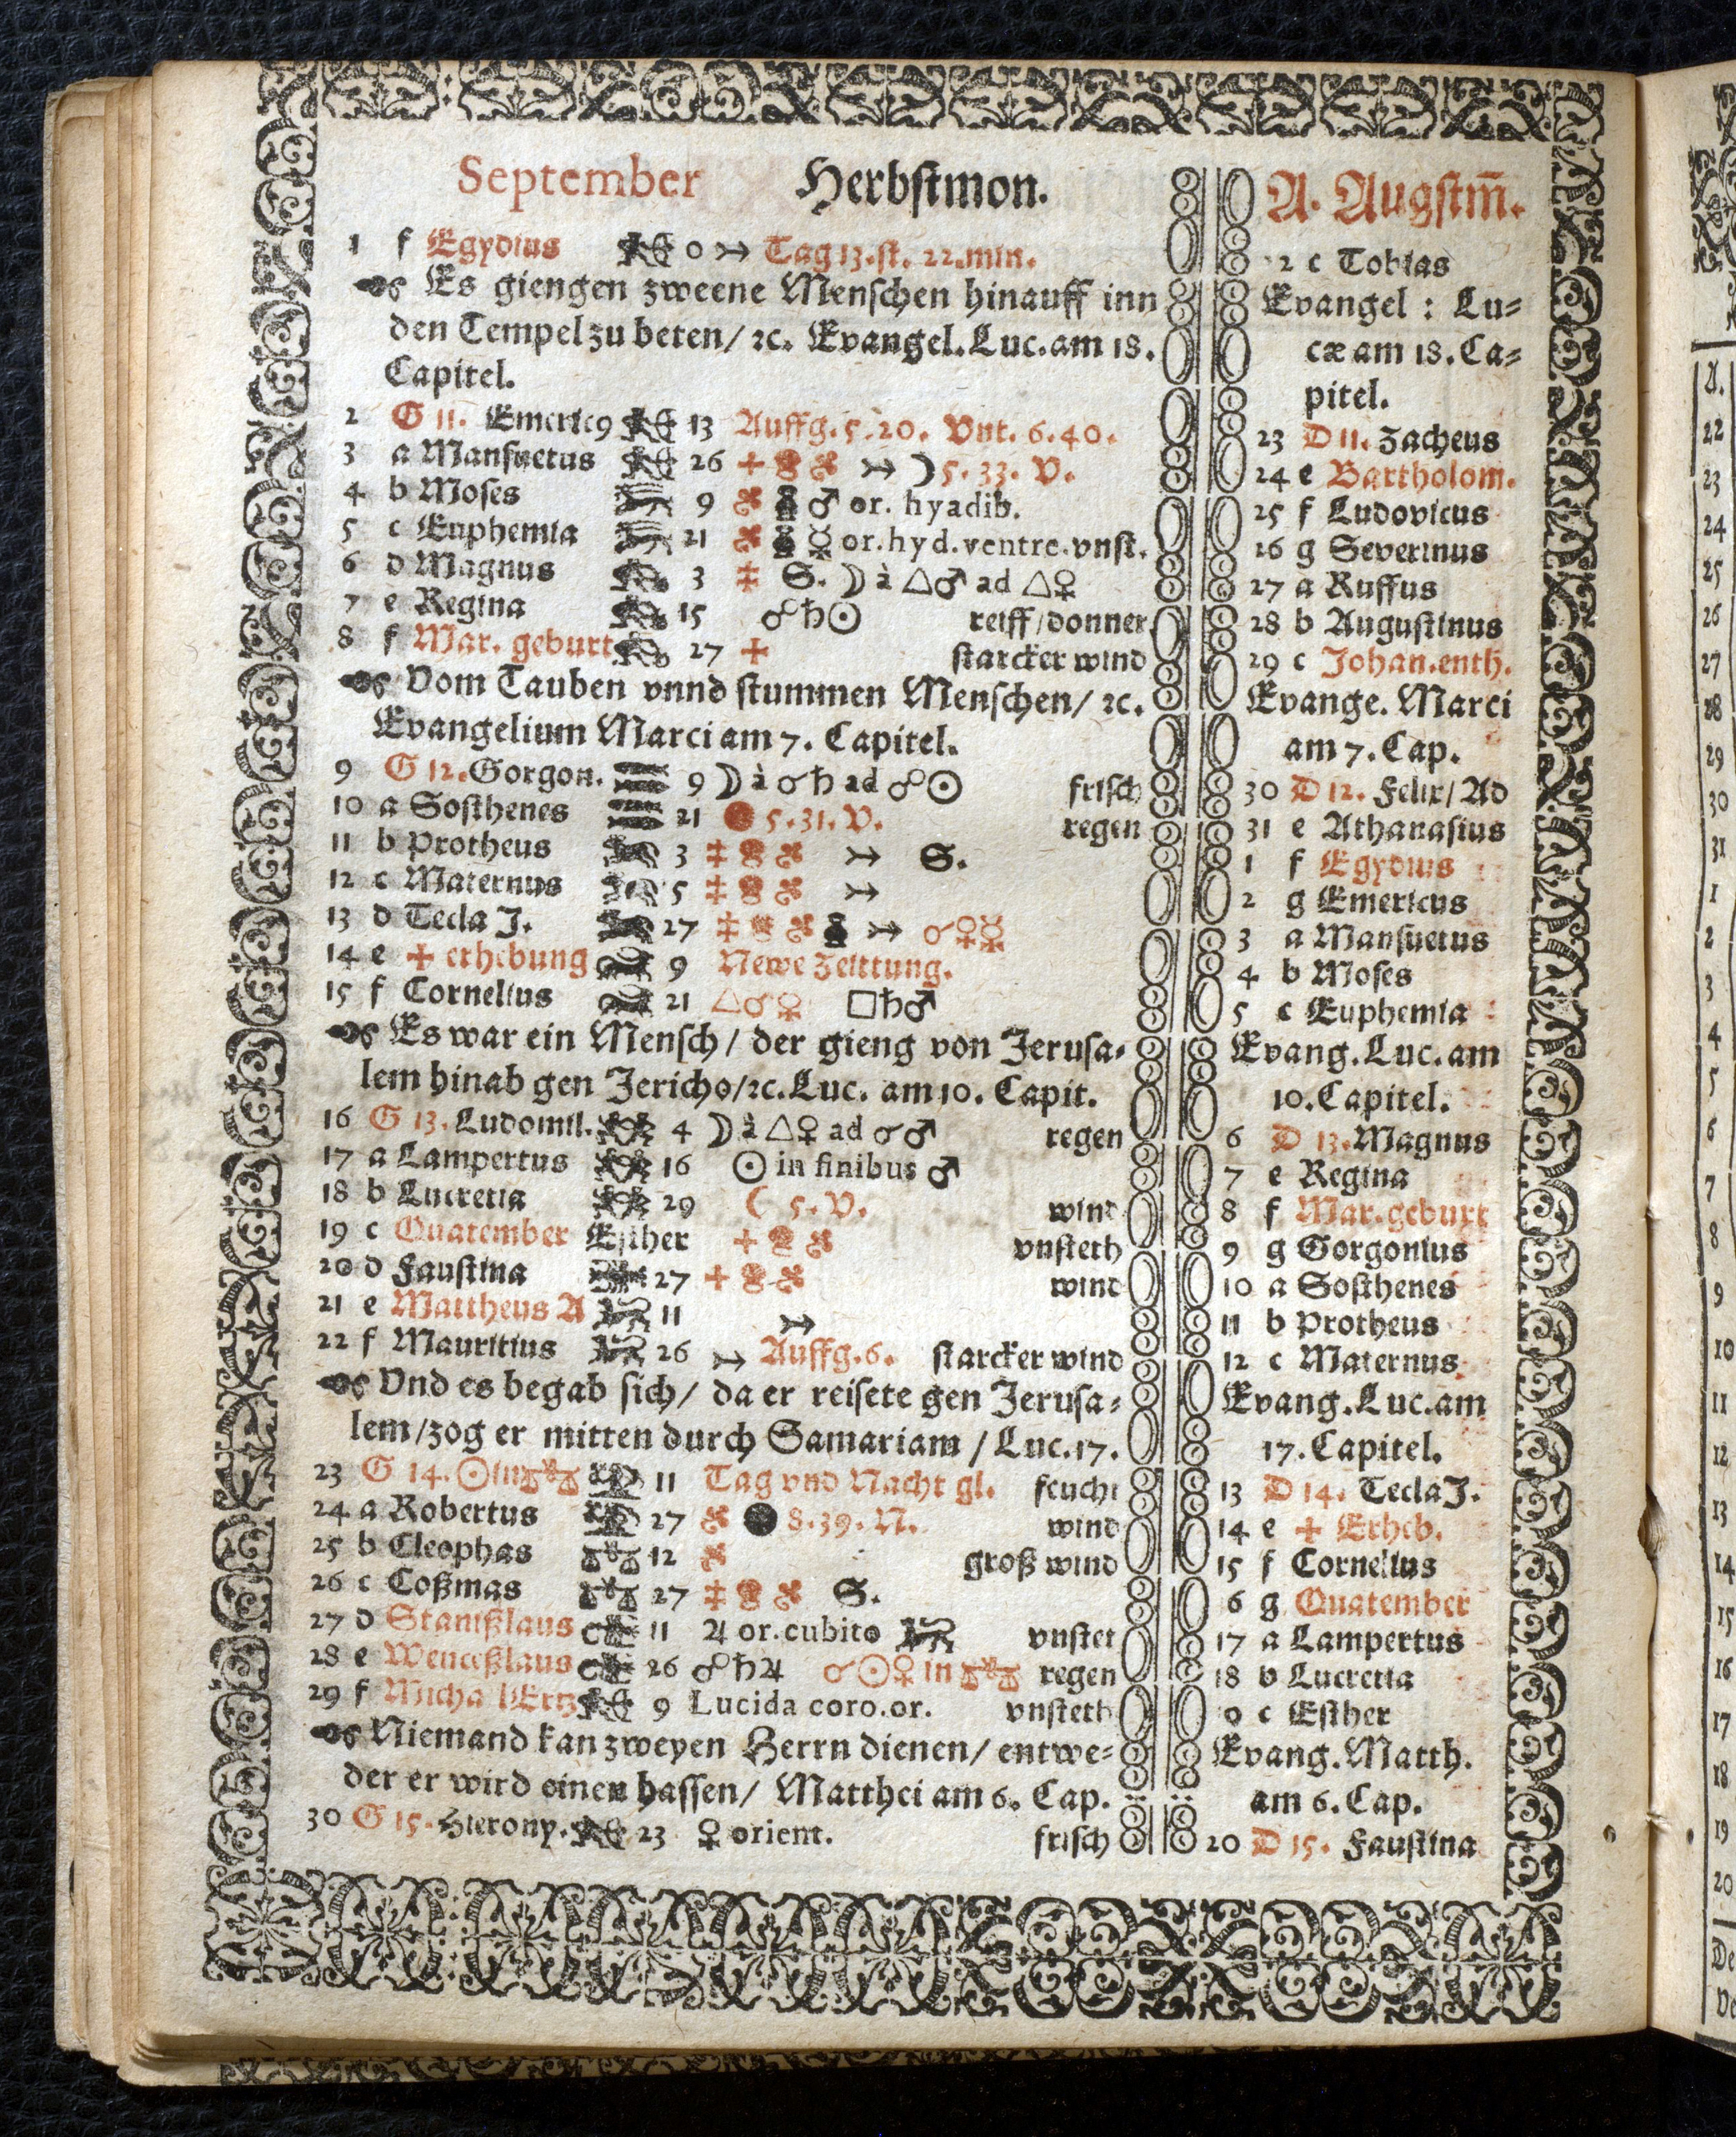 September Herbstmon.
1 f Egydius 0 Tag 13. st. 22. min.
Es giengen zweene Menschen hinauff inn
den Tempel zu beten/ ꝛc. Evangel. Luc. am 18.
Capitel.
2 G 11. Emericꝰ 13 Auffg. 5. 20. Vnt. 6. 40.
3 a Mansuetus 26 ☽ 5. 33. V.
4 b Moses 9 ♂ or. hyadib.
5 c Euphemia 21 ☿ or. hyd. ventre. vnst.
6 d Magnus 3 S. ☽ à △♂ ad △♀
7 e Regina 15 ☍♄☉ reiff/donner
8 f Mar. geburt 27 starcker wind
Vom Tauben vnnd stummen Menschen/ ꝛc.
Evangelium Marci am 7. Capitel.
9 G 12. Gorgon. 9 ☽ à ☌♄ ad ☍☉ frisch
10 a Sosthenes 21 5. 31. V. regen
11 b Protheus 3 S.
12 c Maternus 5
13 d Tecla J. 27 ☌♀☿
14 e ✚ erhebung 9 Newe Zeittung.
15 f Cornelius 21 △♂♀ □♄♂
Es war ein Mensch/ der gieng von Jerusa-
lem hinab gen Jericho/ꝛc. Luc. am 10. Capit.
16 G 13. Ludomil. 4 ☽ à △♀ ad ☌♂ regen
17 a Lampertus 16 ☉ in finibus ♂
18 b Lucretia 29 ☾ 5. V. wind
19 c Quatember Esther vnsteth
20 d Faustina 27 wind
21 e Mattheus A 11
22 f Mauritius 26 Auffg. 6. starcker wind
Vnd es begab sich/ da er reisete gen Jerusa-
lem/zog er mitten durch Samariam / Luc. 17.
23 G 14. ☉ in ♎ 11 Tag vnd Nacht gl. feucht
24 a Robertus 27 8. 39. N. wind
25 b Cleophas 12 groß wind
26 c Coßmas 27 S.
27 d Stanißlaus 11 ♃ or. cubito vnstet
28 e Wenceßlaus 26 ☍♄♃ ☌☉♀ in ♎ regen
29 f Micha lErtz 9 Lucida coro. or. vnsteth
Niemand kan zweyen Herrn dienen/ entwe-
der er wird einen hassen/ Matthei am 6. Cap.
30 G 15. Hierony. 23 ♀ orient. frisch
A. Augstm̃.
2 c Tobias
Evangel : Lu-
cæ am 18. Ca-
pitel.
23 D 11. Zacheus
24 e Bartholom.
25 f Ludovicus
26 g Severinus
27 a Ruffus
28 b Augustinus
29 c Johan. enth.
Evange. Marci
am 7. Cap.
30 D 12. Felix/ Ad
31 e Athanasius
1 f Egydius
2 g Emericus
3 a Mansuetus
4 b Moses
5 c Euphemia
Evang. Luc. am
10. Capitel.
6 D 13. Magnus
7 e Regina
8 f Mar. geburt
9 g Gorgonius
10 a Sosthenes
11 b Protheus
12 c Maternus
Evang. Luc. am
17. Capitel.
13 D 14. Tecla J.
14 e ✚ Erheb.
15 f Cornelius
6 g Quatember
17 a Lampertus
18 b Lucretia
9 c Esther
Evang. Matth.
am 6. Cap.
20 D 15. Faustina
A.
22
23
24
25
26
27
28
29
30
31
1
2
3
4
5
6
7
8
9
10
11
12
13
14
15
16
17
18
19
20